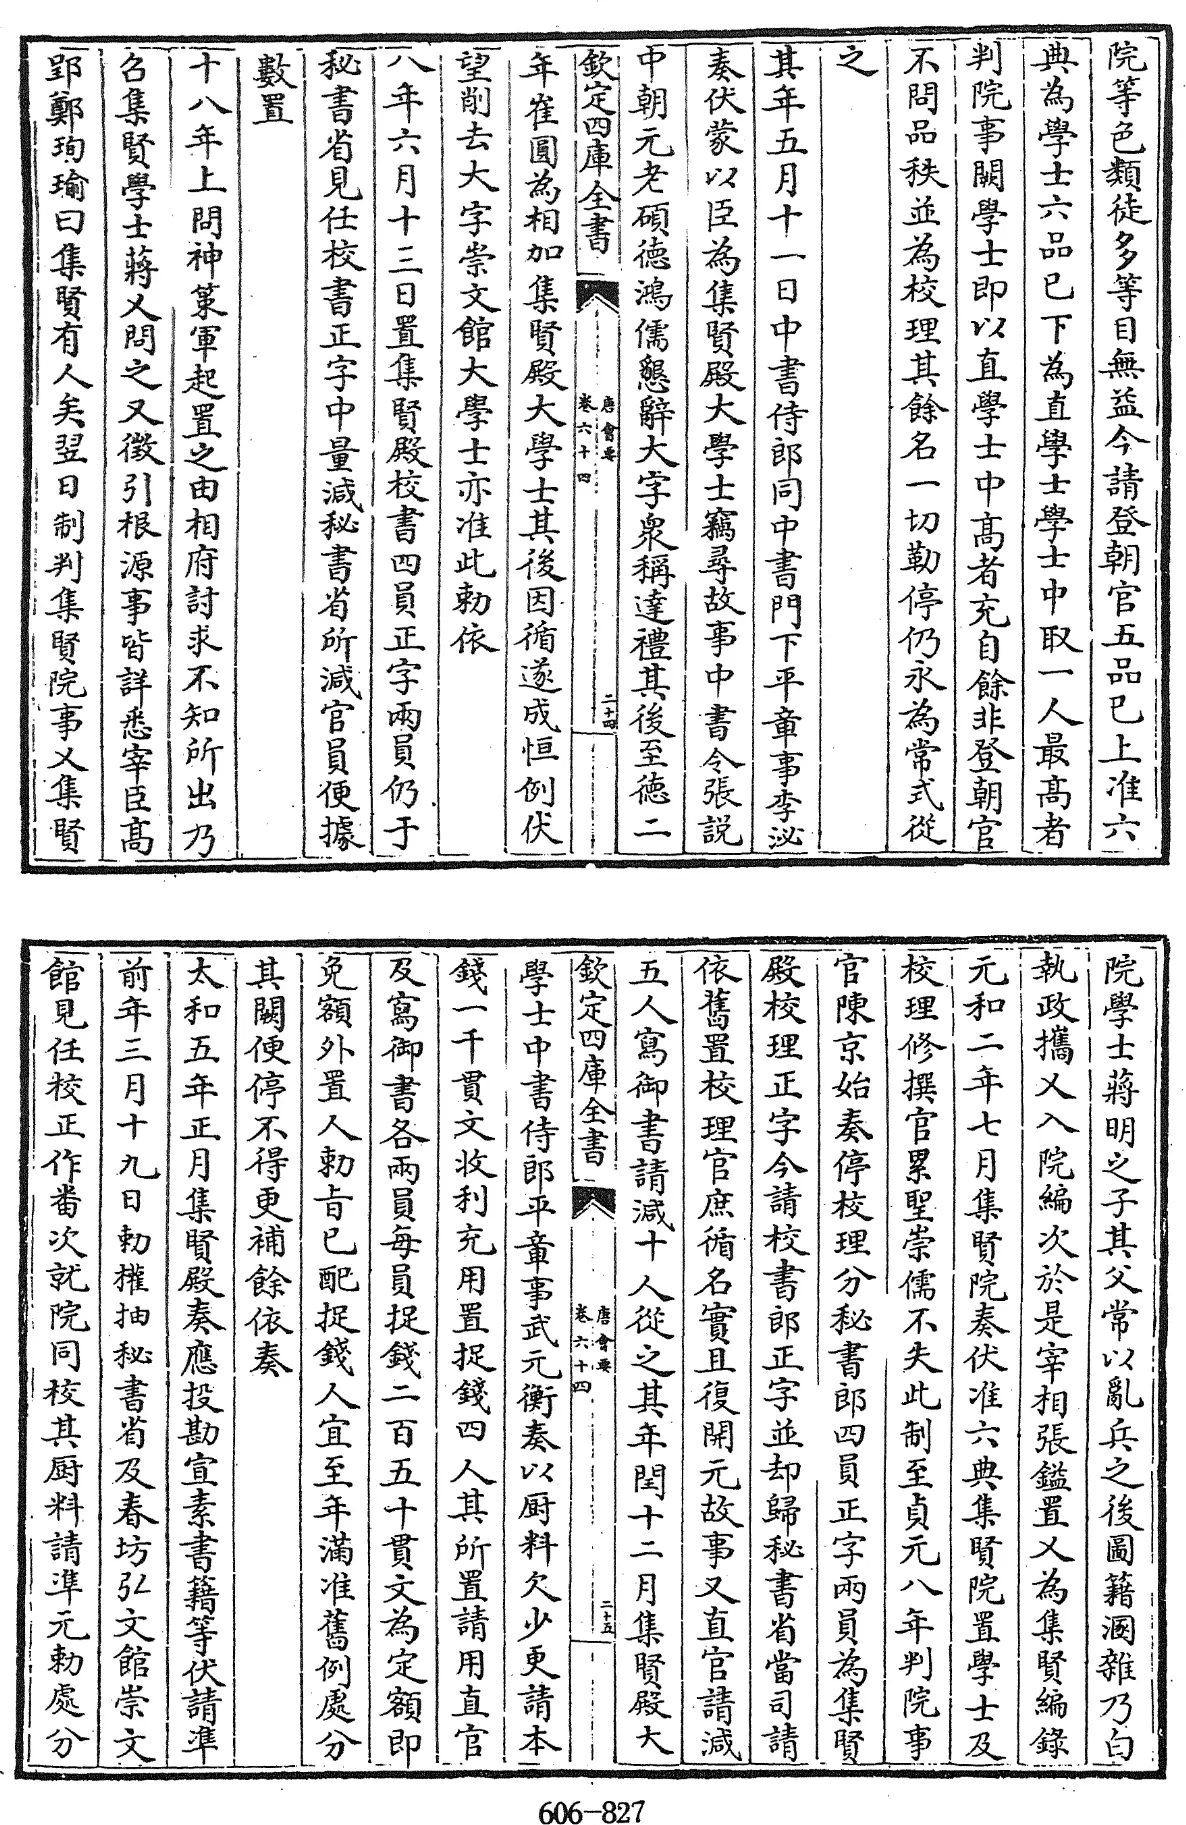 院等色類徒多等目無益今請登朝官五品已上准六
典為學士六品已下為直學士學士中取一人最髙者
判院事闕學士即以直學士中髙者充自餘非登朝官
不問品秩並為校理其餘名一切勒停仍永為常式從
之
其年五月十一日中書侍郎同中書門下平章事李泌
奏伏蒙以臣為集賢殿大學士竊尋故事中書令張説
中朝元老碩德鴻儒懇辭大字衆稱達禮其後至德二
欽定四庫全書
唐會要
卷六十四
二十四
年崔圓為相加集賢殿大學士其後因循遂成恒例伏
望削去大字崇文館大學士亦准此勅依
八年六月十三日置集賢殿校書四員正字兩員仍于
秘書省見任校書正字中量減秘書省所減官員便據
數置
十八年上問神策軍起置之由相府討求不知所出乃
召集賢學士蔣乂問之乂徵引根源事皆詳悉宰臣髙
郢鄭珣瑜曰集賢有人矣翌日制判集賢院事乂集賢
院學士蔣明之子其父常以亂兵之後圖籍溷雜乃白
執政攜乂入院編次於是宰相張鎰置乂為集賢編錄
元和二年七月集賢院奏伏准六典集賢院置學士及
校理修撰官累聖崇儒不失此制至貞元八年判院事
官陳京始奏停校理分秘書郎四員正字兩員為集賢
殿校理正字今請校書郎正字並却歸秘書省當司請
依舊置校理官庶循名實且復開元故事又直官請減
五人寫御書請減十人從之其年閏十二月集賢殿大
欽定四庫全書
唐會要
卷六十四
二十五
學士中書侍郎平章事武元衡奏以厨料欠少更請本
錢一千貫文收利充用置捉錢四人其所置請用直官
及寫御書各兩員每員捉錢二百五十貫文為定額即
免額外置人勅旨已配捉錢人宜至年滿准舊例處分
其闕便停不得更補餘依奏
太和五年正月集賢殿奏應投勘宣索書籍等伏請準
前年三月十九日勅權抽秘書省及春坊弘文館崇文
館見任校正作番次就院同校其厨料請準元勅處分
606-827